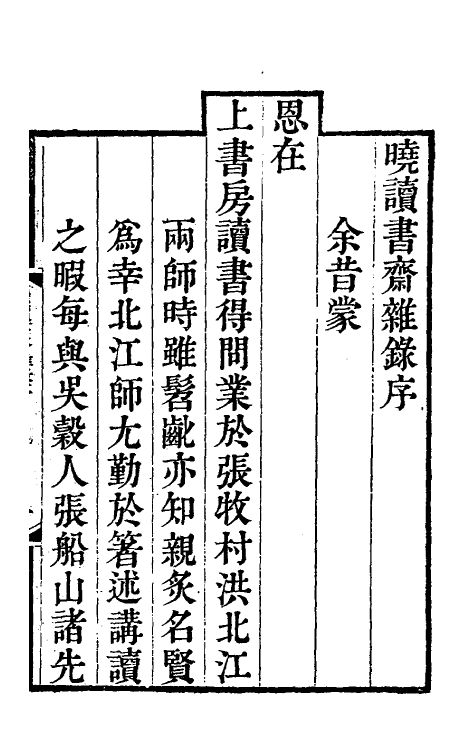 曉讀書齋雜錄序
余昔蒙
恩在
上書房讀書得問業於張牧村洪北江
兩師時雖髫齔亦知親炙名賢
爲幸北江師尤勤於箸述講讀
之暇每與吳穀人張船山諸先